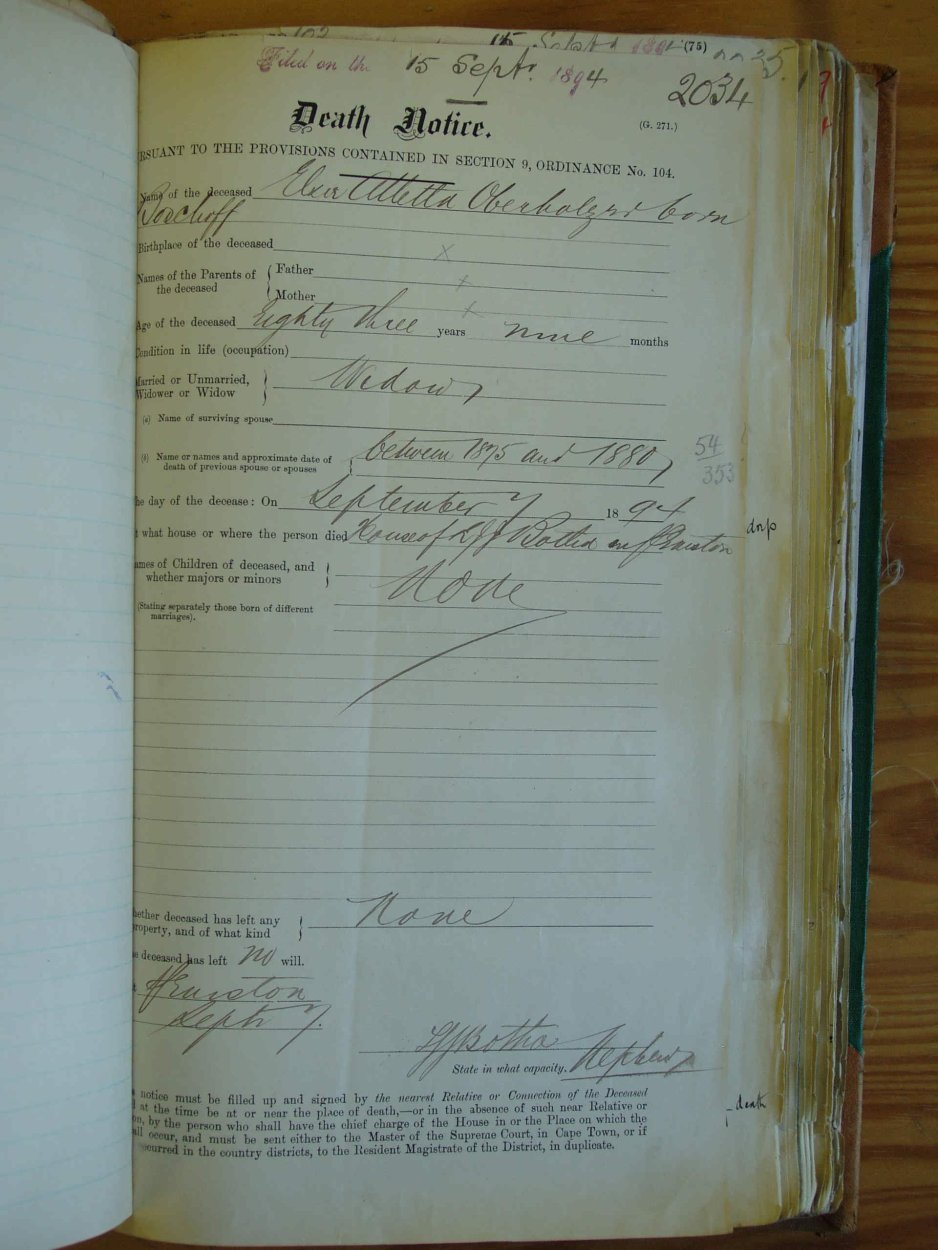 15 Sept 1894 (75)
Filed on the 15 Sept. 1894
2034
Death Notice.
(G. 271.)
RSUANT TO THE PROVISIONS CONTAINED IN SECTION 9, ORDINANCE No. 104.
Name of the deceased Elsie Alletta Oberholzer born
Boschoff
Birthplace of the deceased x
Names of the Parents of the deceased { Father x
Mother x
Age of the deceased Eighty three years nine months
Condition in life (occupation)
Married or Unmarried, Widower or Widow } Widow
(a) Name of surviving spouse
(b) Name or names and approximate date of death of previous spouse or spouses } between 1875 and 1880
54
353
he day of the decease: On September 7 1894
t what house or where the person died House of Botha in
ames of Children of deceased, and whether majors or minors } None
(Stating separately those born of different marriages).
hether deceased has left any roperty, and of what kind } None
e deceased has left no will.
Septr 7.
Botha
State in what capacity. Nephew
notice must be filled up and signed by the nearest Relative or Connection of the Deceased
at the time be at or near the place of death,—or in the absence of such near Relative or
on, by the person who shall have the chief charge of the House in or the Place on which the
all occur, and must be sent either to the Master of the Supreme Court, in Cape Town, or if
ccurred in the country districts, to the Resident Magistrate of the District, in duplicate.
death